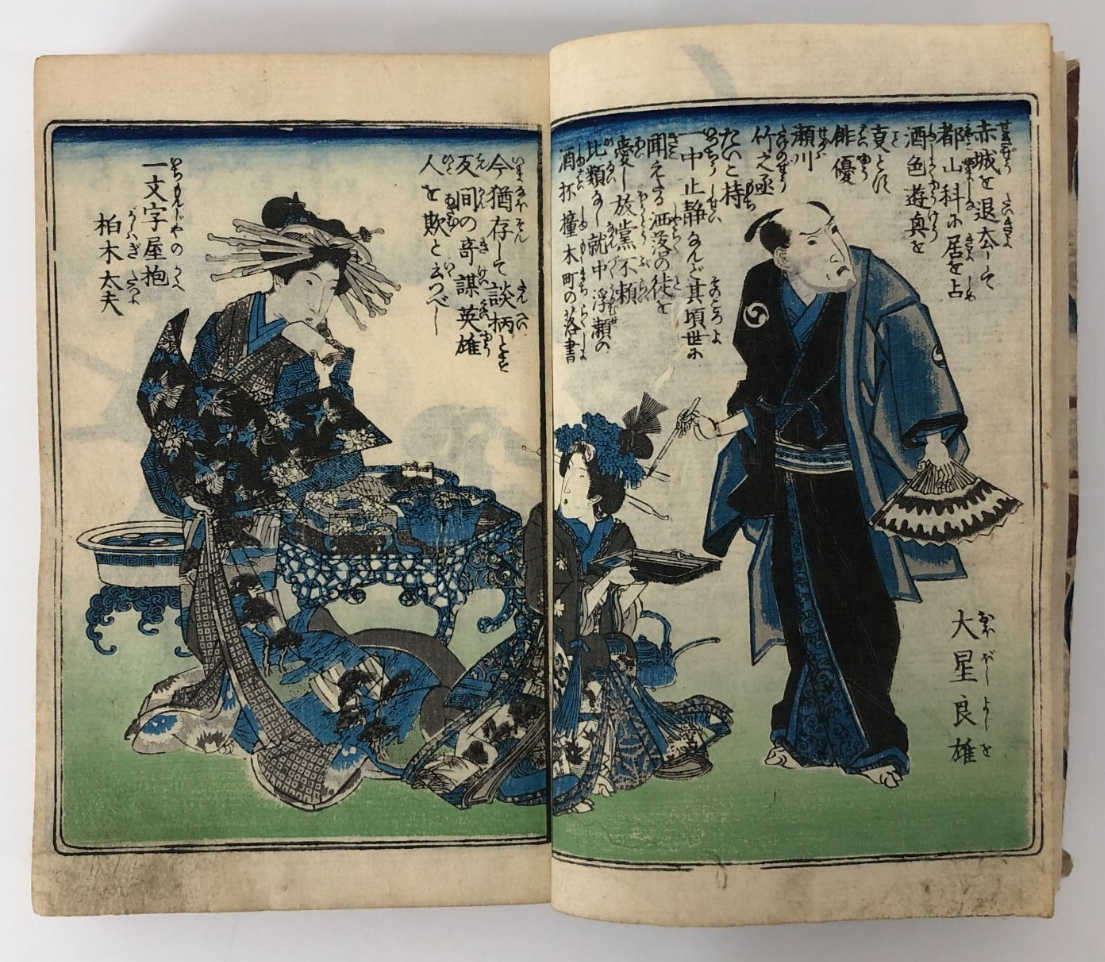 赤城を退去して
都山科に居を占
酒色遊興を
真とし
俳優
瀬川
竹之丞
たいこ持
一中止静なんど其頃世に
聞えたる洒落の徒を
愛し放黨不頼
比類なし就中浮瀬の
酒杯撞木町の落書
今猶存して談柄とす
反間の奇謀英雄
人を欺と云つべし
一文字屋抱
柏木太夫
大星良雄